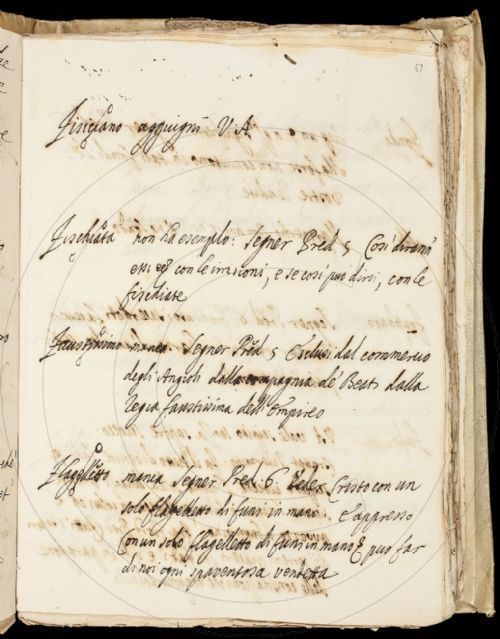 57
Fisiciano aggiugni V. A.
Fischiata non ha esempio: Segner Pred 5 Così diranno
essi con le irrisioni, e se così può dirsi, con le
fischiate
Faustissimo manca. Segner Pred 5 Esclusi dal commercio
degli Angioli dalla compagnia de' Beati dalla
regia faustissima dell' Empireo
Flagelletto manca Segner Pred. 6. Veder Cristo con un
solo flagelletto di funi in mano. E appresso
Con un solo flagelletto di funi in mano E può far
di noi ogni spaventosa vendetta